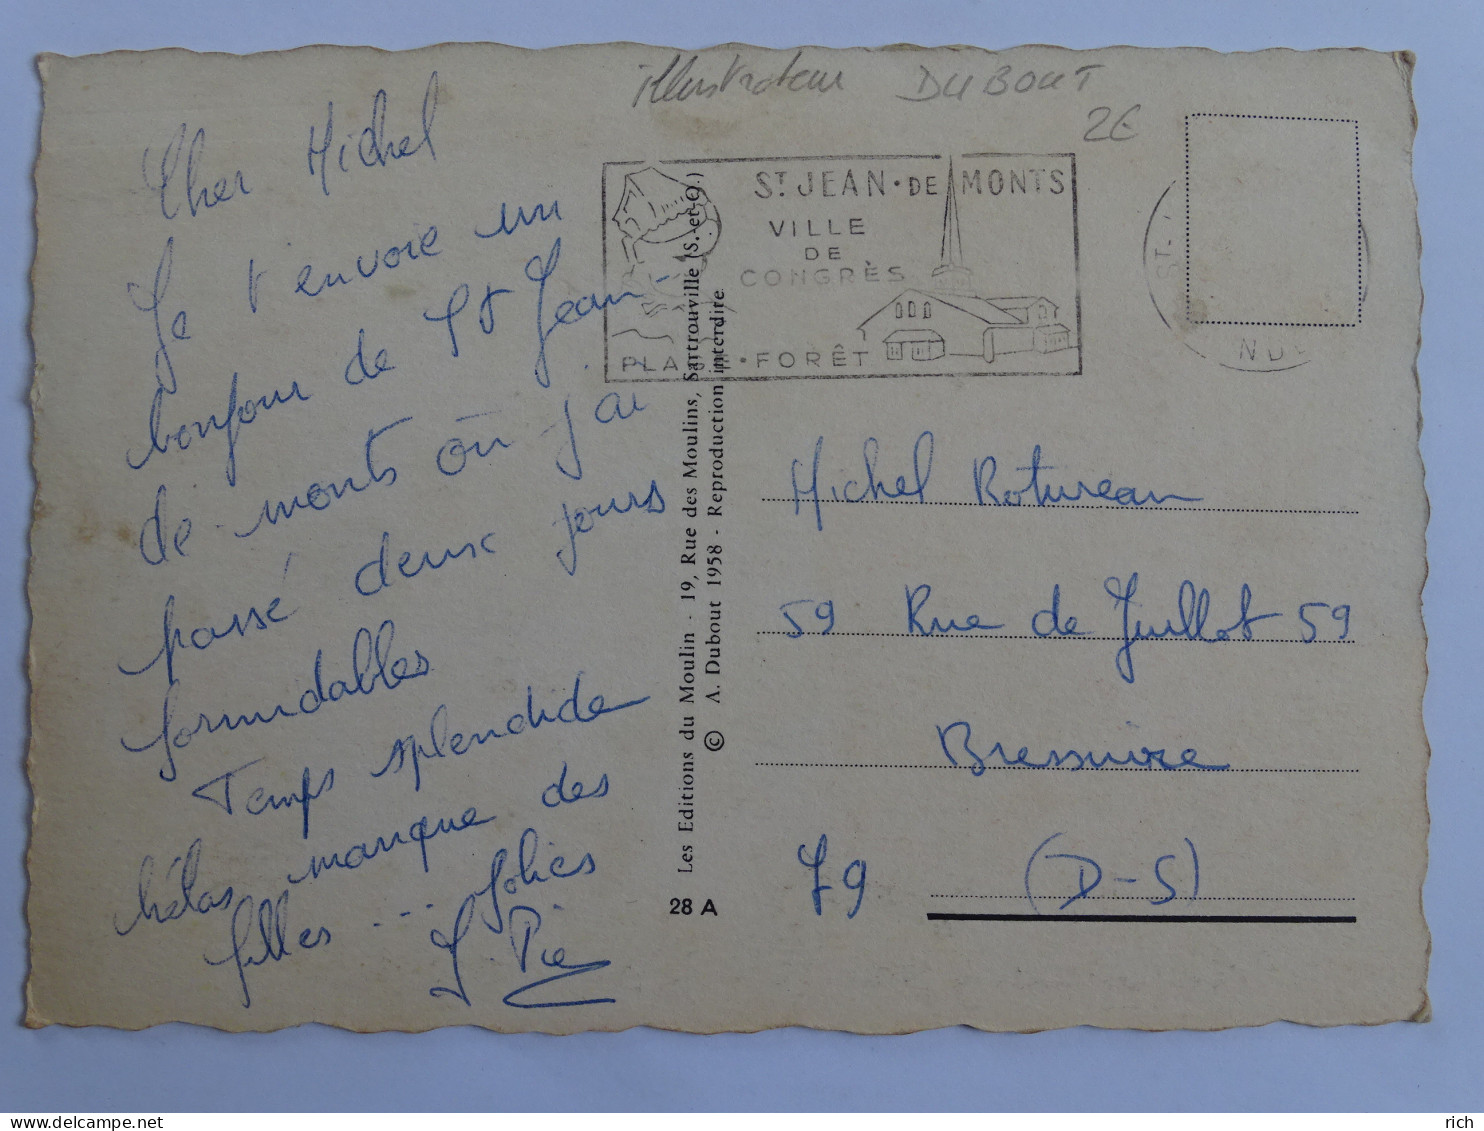 illustrateur DUBOUT
2€
Cher Michel
Je t'envoie un
bonjour de St Jean-
de-monts où j'ai
passé deux jours
formidables
Temps splendide
hélas manque des
filles ... jolies
J Pie
ST JEAN·DE MONTS
VILLE
DE
CONGRÈS
PLAGE·FORÊT
ST.
ND
Les Editions du Moulin - 19, Rue des Moulins, Sartrouville (S.-et-O.)
© A. Dubout 1958 - Reproduction interdite
28 A
Michel Rotureau
59 Rue de Juillot 59
Bressuire
79 (D-S)
delcampe.net
rich